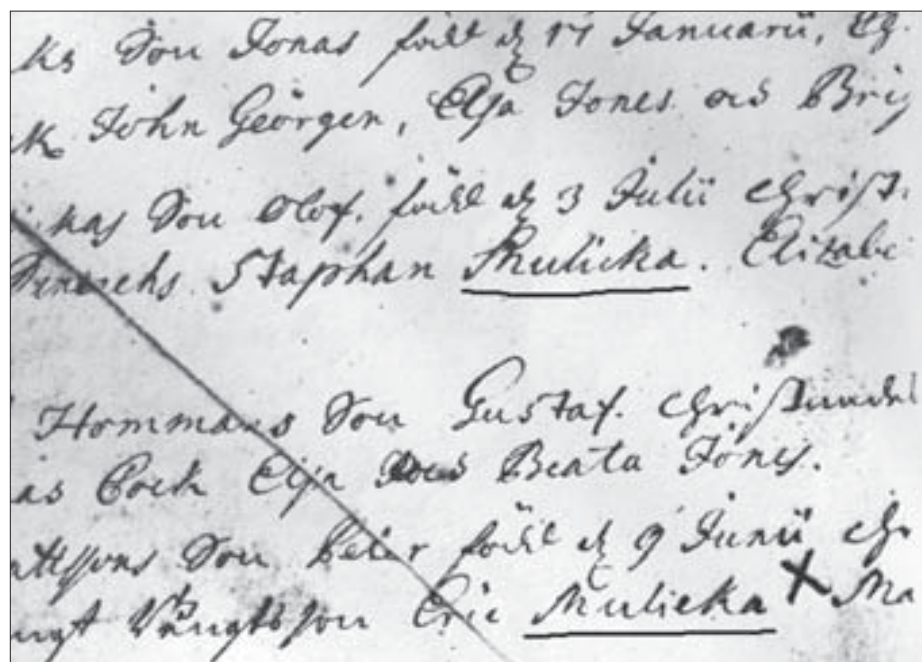 Son Jonas född d 17 Januarii,
John Georgen, Elsa Jones os Brig
kas Son Olof. född d 3 Julii Christ.
Staphan Mulicka. Elizabe
Hommans Son Gustaf. Christnadel
as Cock Elsa Beata Jones.
Son Peter född d 9 Junii Chr
ngt Bängtsson Eric Mulicka X Ma